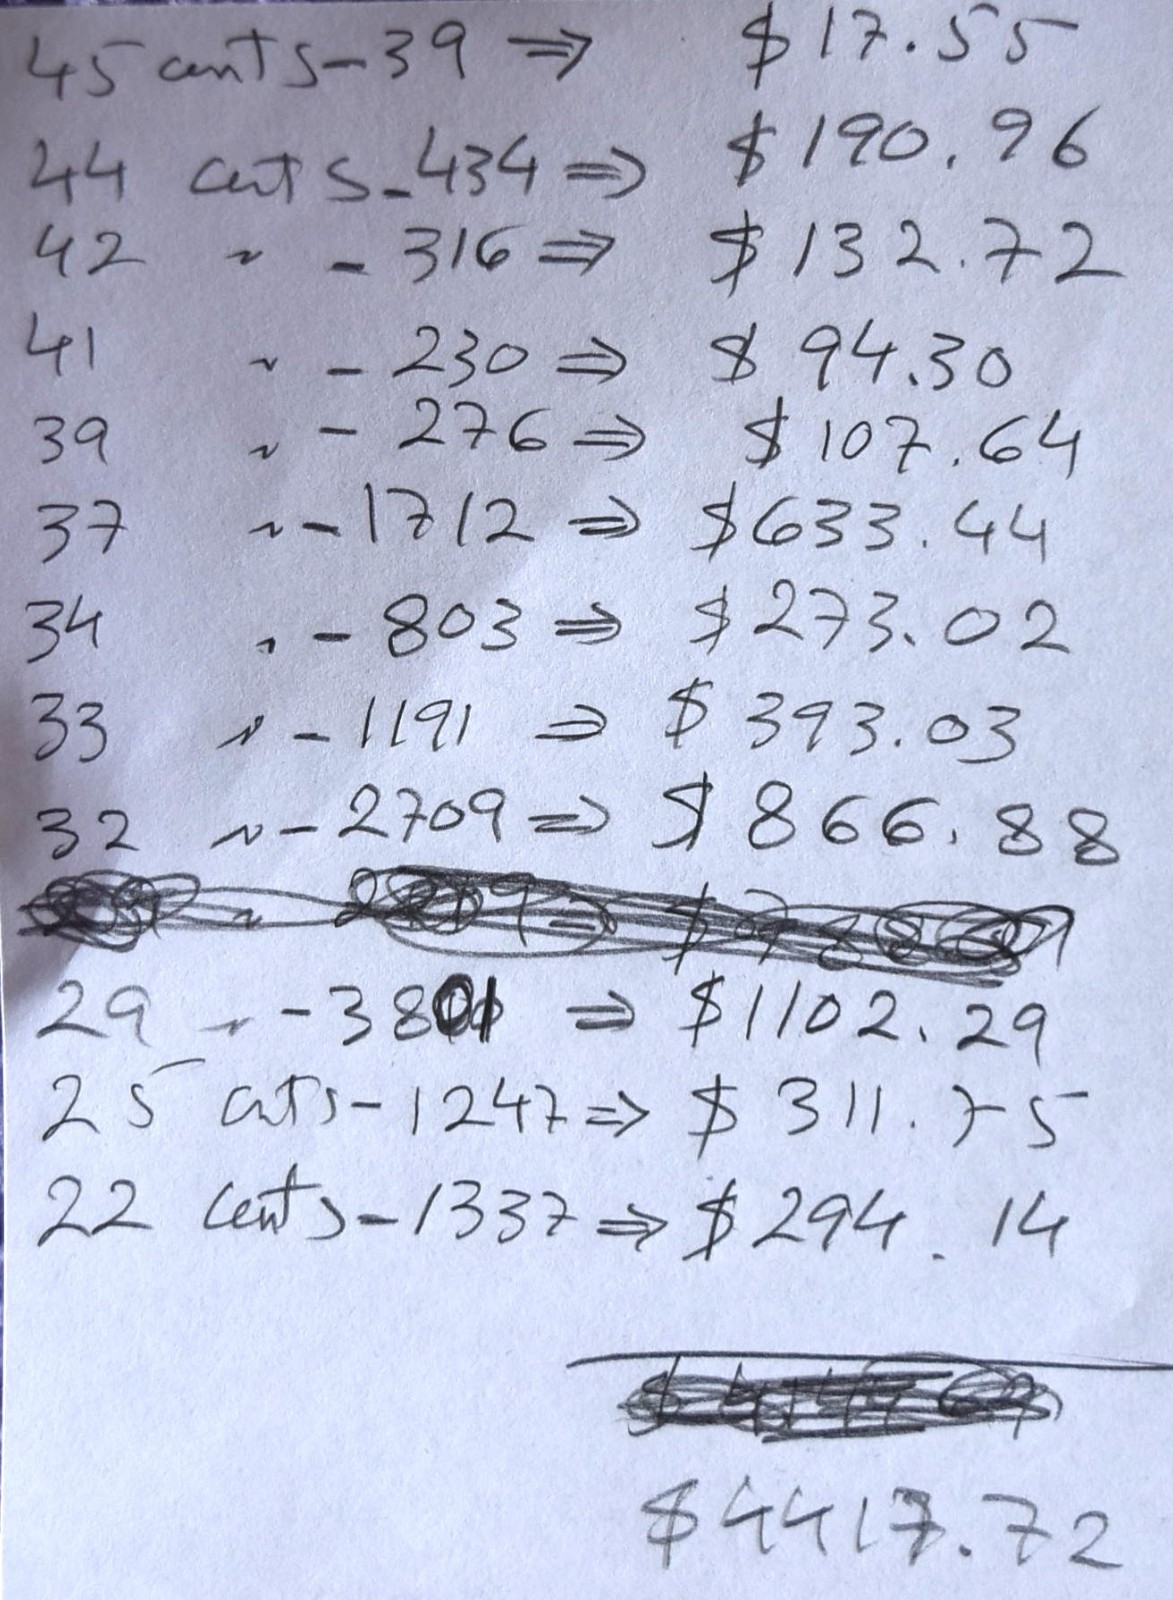 45 cents - 39 ⇒ $17.55
44 cents - 434 ⇒ $190.96
42 " - 316 ⇒ $132.72
41 " - 230 ⇒ $94.30
39 " - 276 ⇒ $107.64
37 " - 1712 ⇒ $633.44
34 " - 803 ⇒ $273.02
33 " - 1191 ⇒ $393.03
32 " - 2709 ⇒ $866.88
29 " - 3801 ⇒ $1102.29
25 cnts - 1247 ⇒ $311.75
22 cents - 1337 ⇒ $294.14
$4417.72